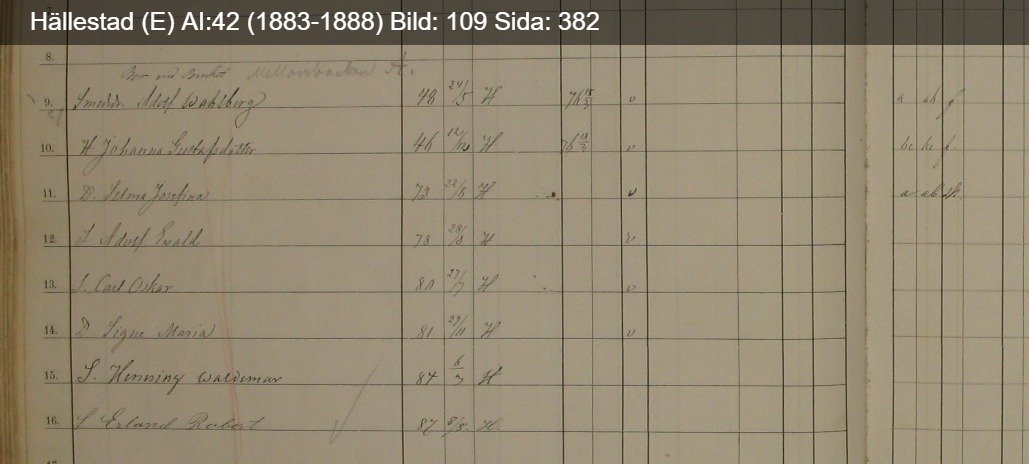 Hällestad (E) AI:42 (1883-1888) Bild: 109 Sida: 382
8.
9. Smeddr. Adolf Wahlberg 48 24/5 H 76 v a ab f
10. H Johanna Gustafsdotter 46 12/12 H 76 v bc bc f.
11. D. Selma Josefina 73 H v a ab
12. S Adolf Ewald 78 H v
13. S. Carl Oskar 80 27/7 H v
14. D Signe Maria 81 29/11 H v
15. S. Henning Waldemar 84 H
16. S Erland Robert 87 8/8 H.